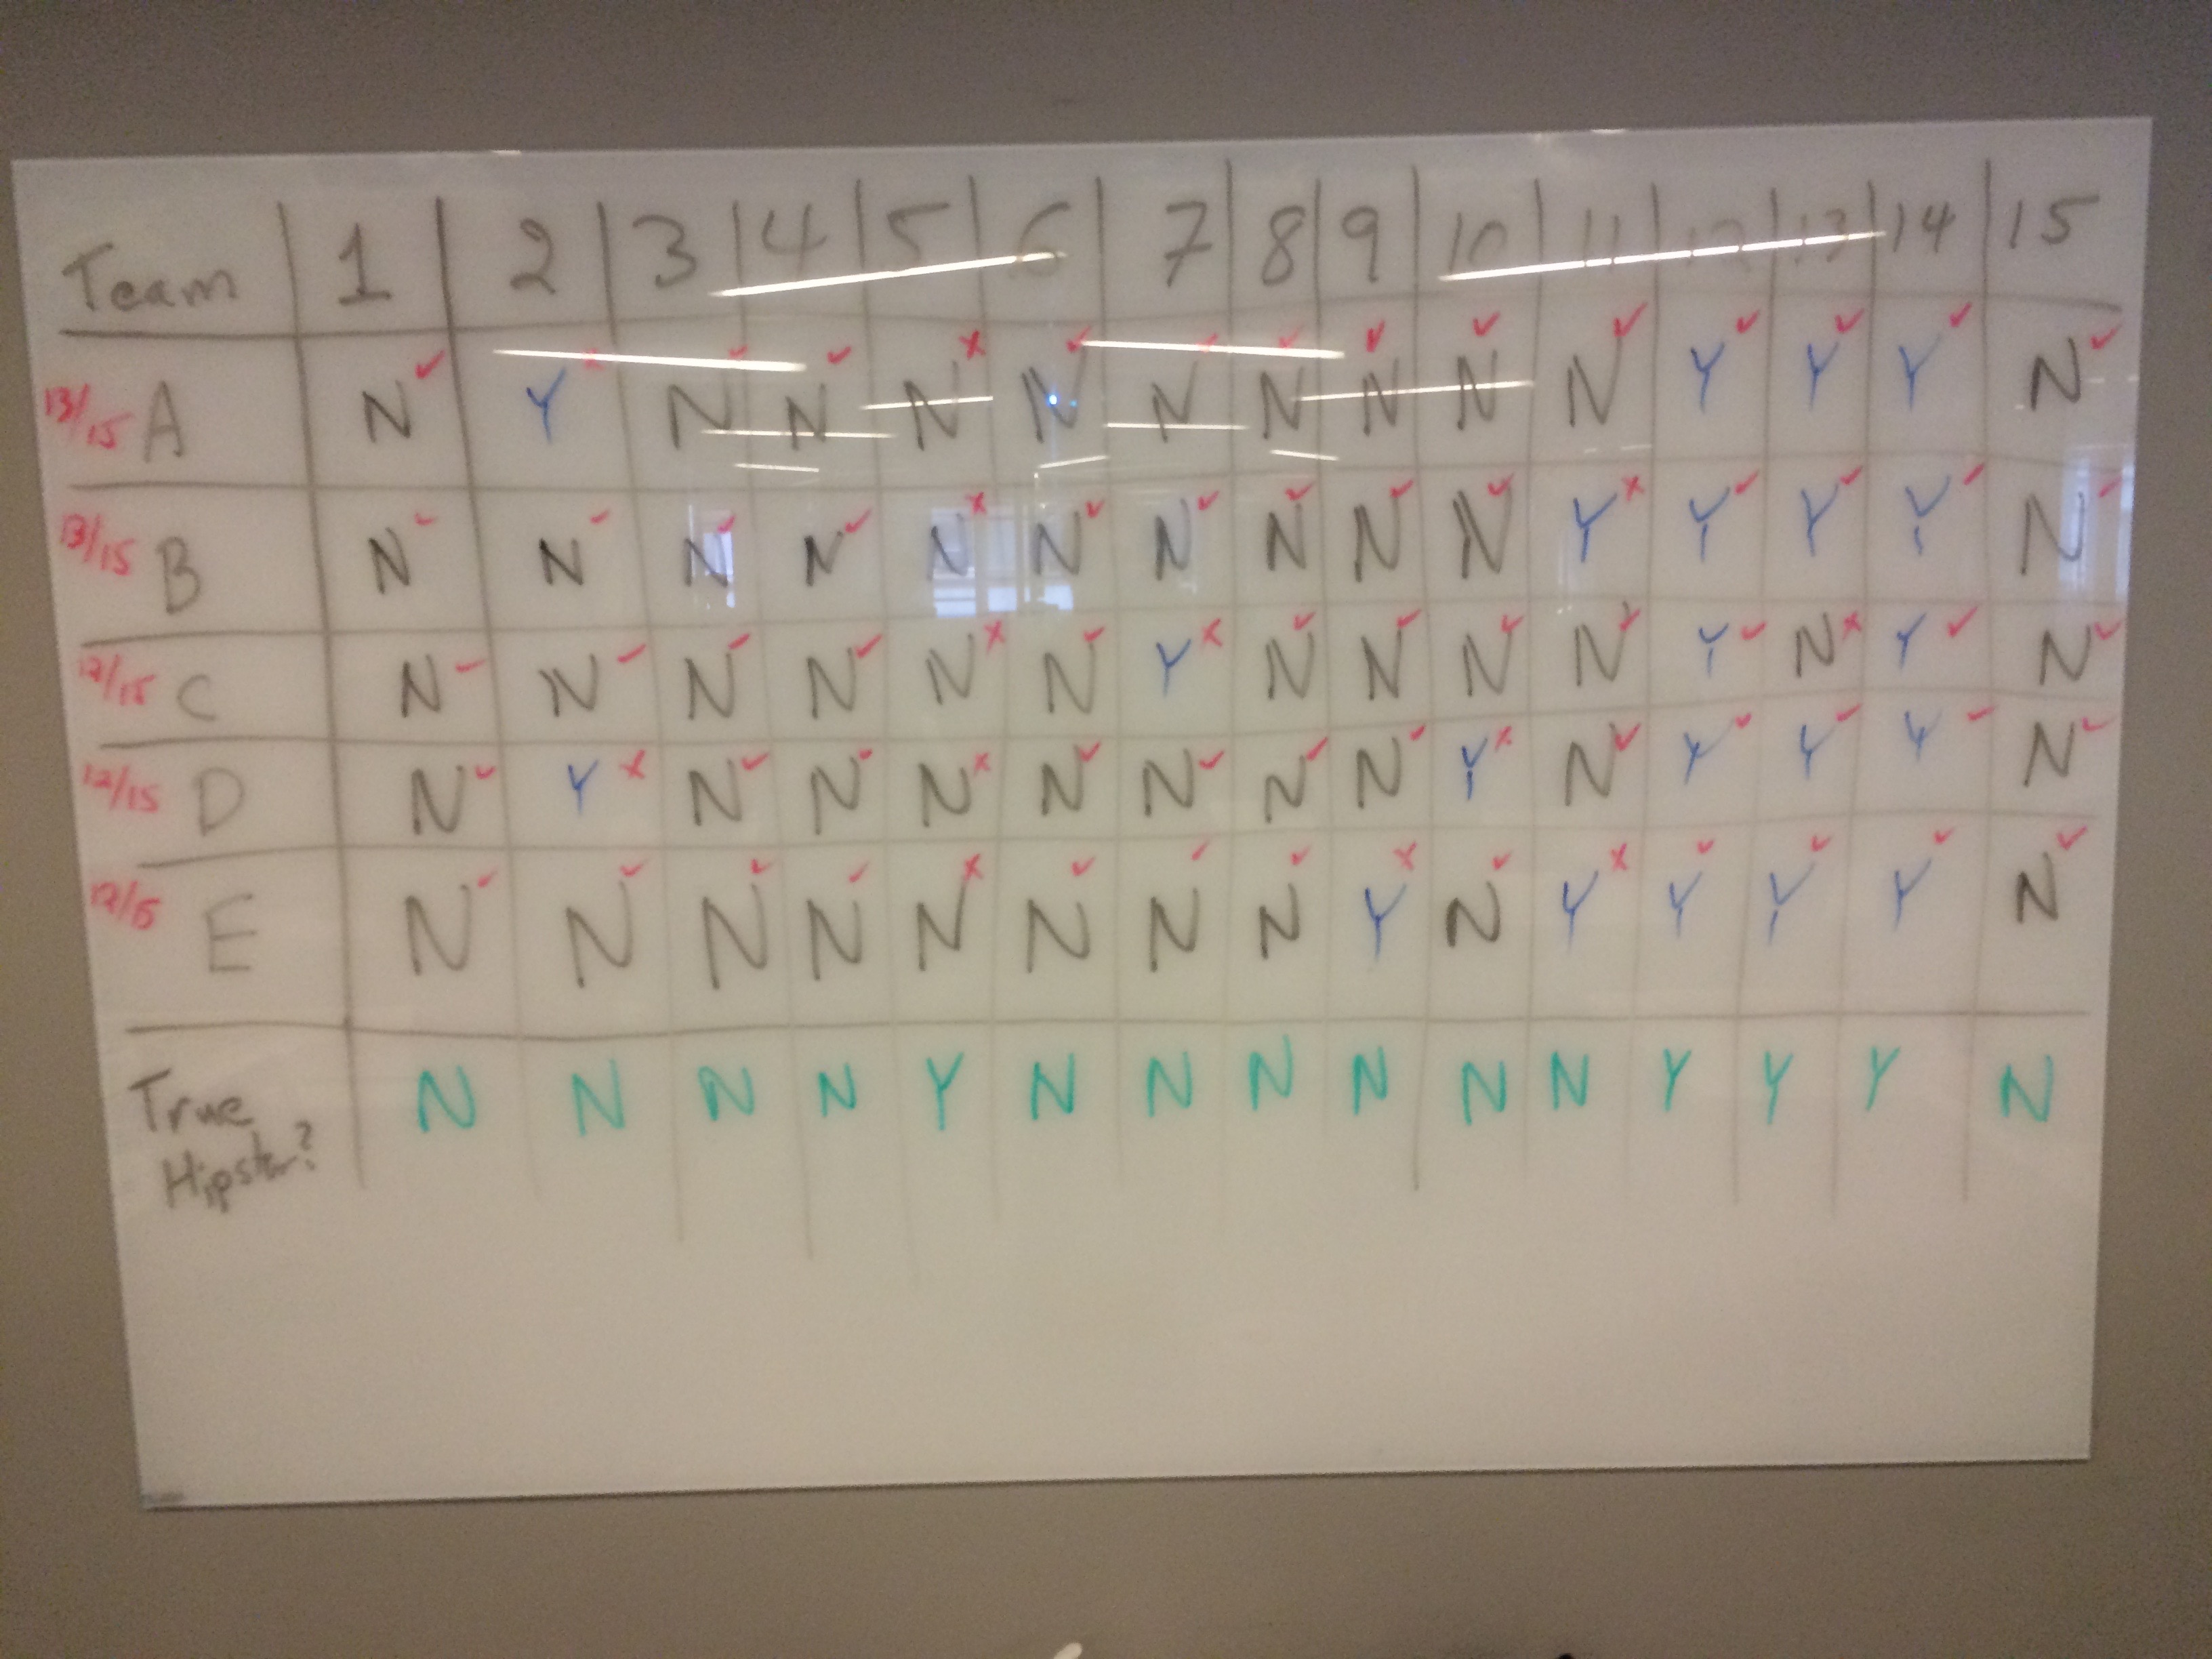 Team 1 2 3 4 5 6 7 8 9 10 11 12 13 14 15
13/15 A N✓ Y✗ N✓ N✓ N✗ N✓ N✓ N✓ N✓ N✓ N✓ Y✓ Y✓ Y✓ N✓
13/15 B N✓ N✓ N✓ N✓ N✗ N✓ N✓ N✓ N✓ N✓ Y✗ Y✓ Y✓ Y✓ N✓
12/15 C N✓ N✓ N✓ N✓ N✗ N✓ Y✗ N✓ N✓ N✓ N✓ Y✓ N✗ Y✓ N✓
12/15 D N✓ Y✗ N✓ N✓ N✗ N✓ N✓ N✓ N✓ Y✗ N✓ Y✓ Y✓ Y✓ N✓
12/15 E N✓ N✓ N✓ N✓ N✗ N✓ N✓ N✓ Y✗ N✓ Y✗ Y✓ Y✓ Y✓ N✓
True N N N N Y N N N N N N Y Y Y N
Hipster?